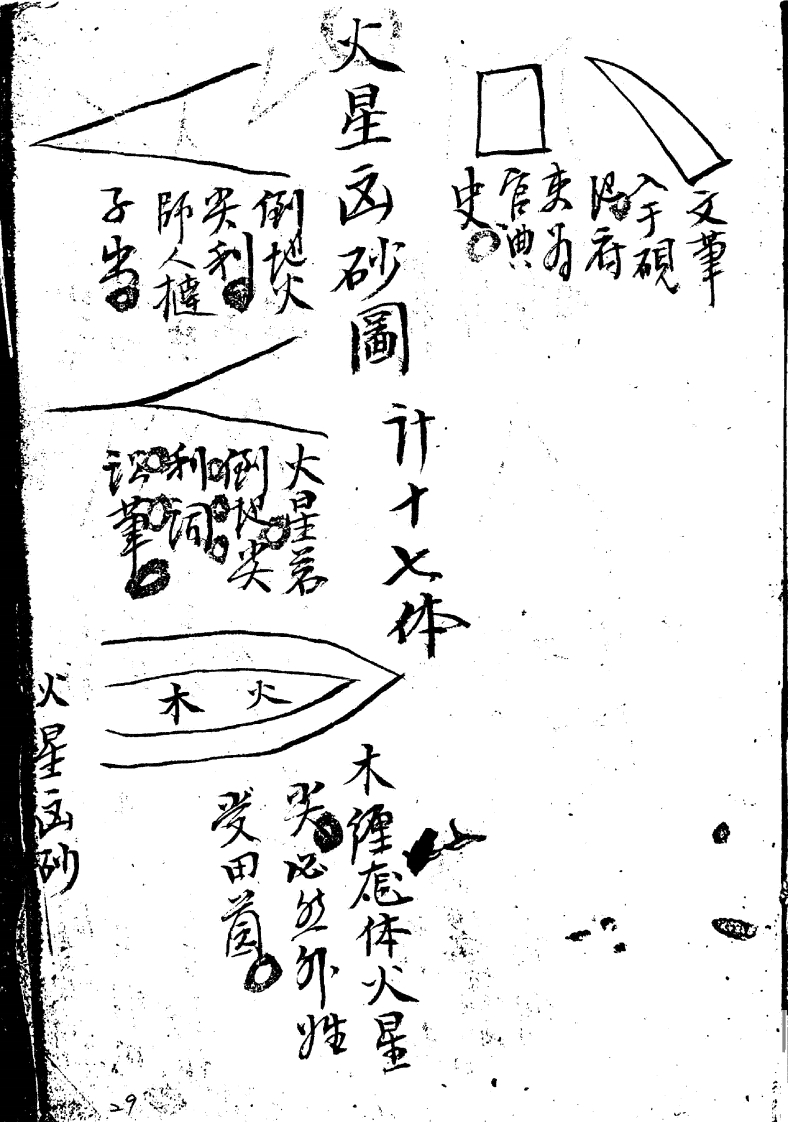 文筆
入于硯
得府
吏為
官典
史
火星凶砂圖
計十七体
倒地火
尖利
師人
子出
火星若
倒地尖
利詞
訟筆
火
木
木纏 体火星
尖必然外姓
受田
火星凶砂
29